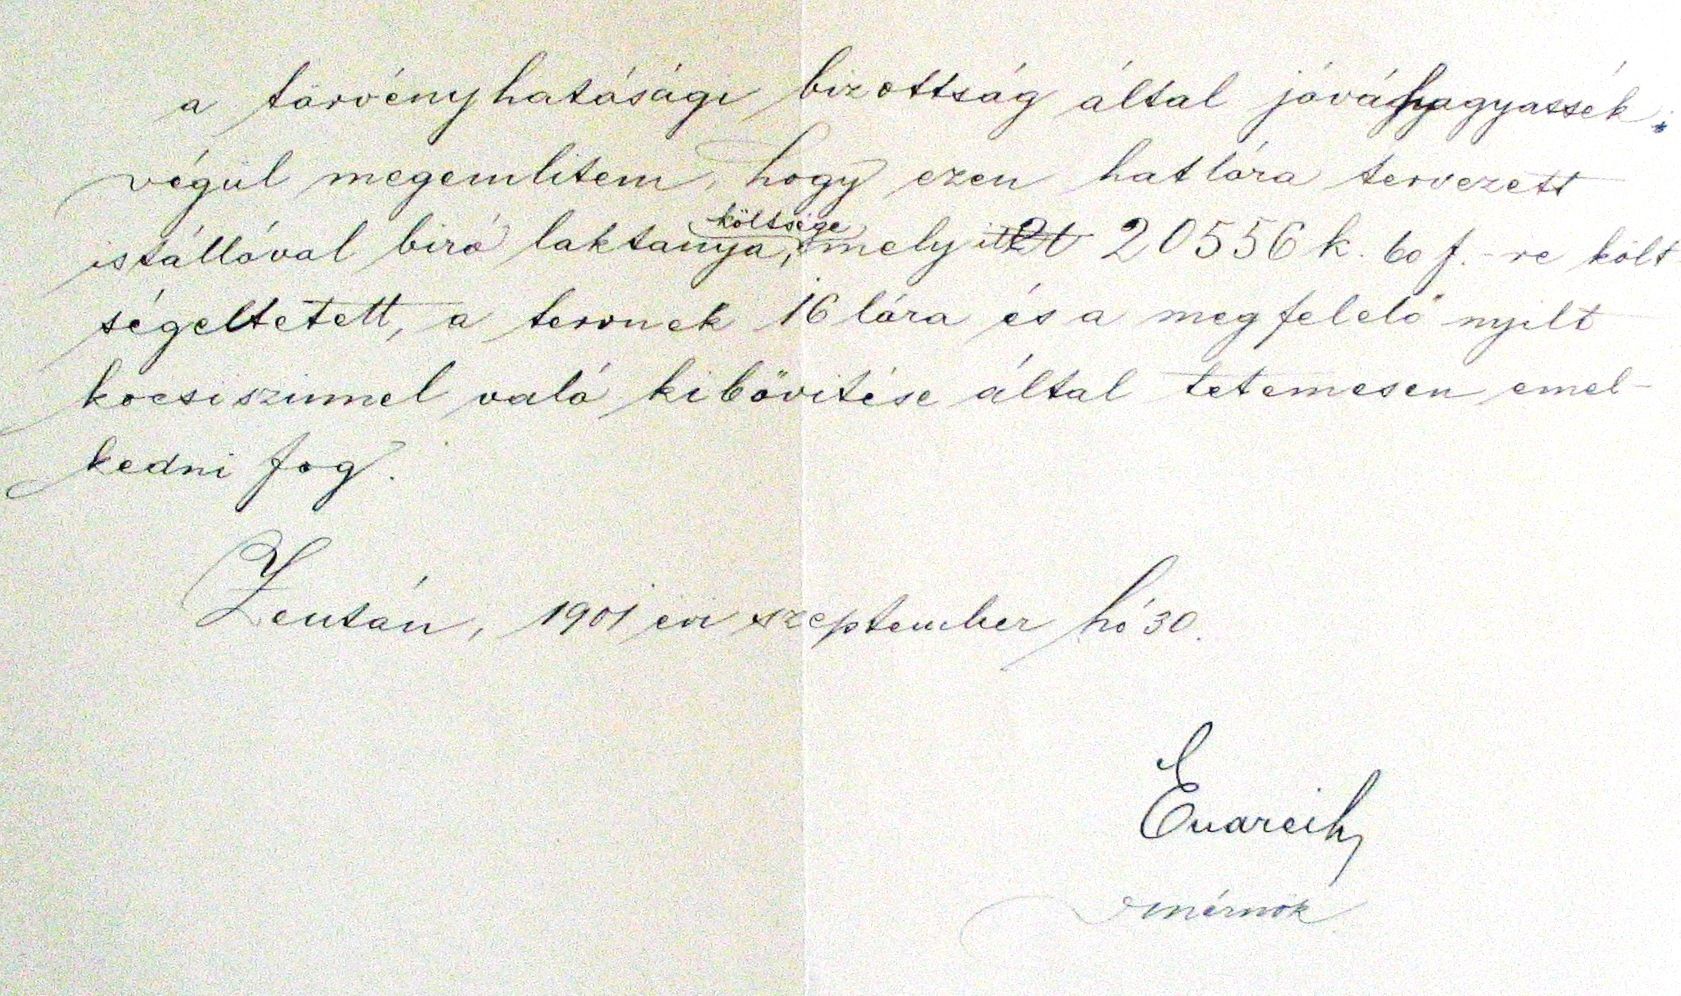 a törvényhatósági bizottság által jóváhagyassék;
végül megemlitem, hogy ezen hat lóra tervezett
istállóval biró laktanya, költsége mely 20556 k. 60 f.-re költ
ségeltetett, a tervnek 16 lóra és a megfelelő nyilt
kocsiszinnel való kibővitése által tetemesen emel-
kedni fog.
Zentán, 1901 évi szeptember hó 30.
mérnök